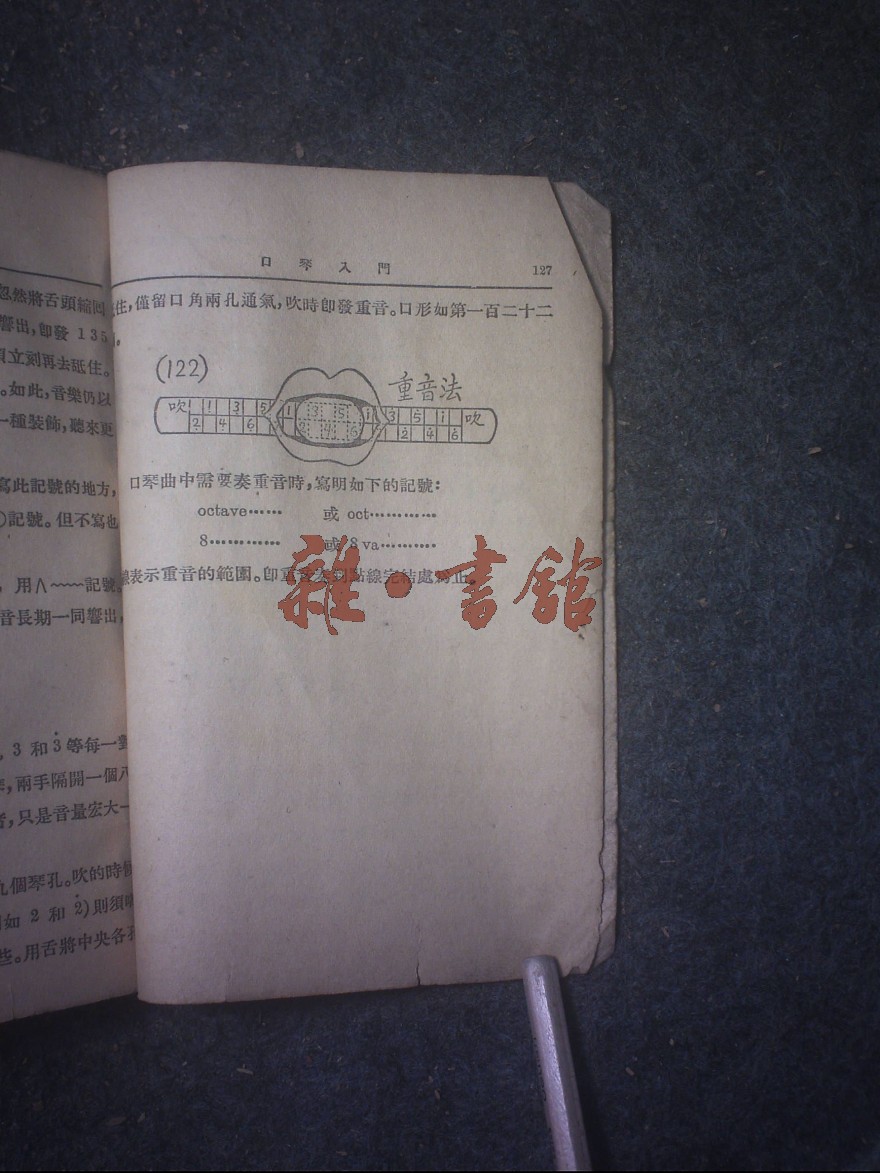 忽然將舌頭縮回
響出,即發 1 3 5
立刻再去舐住。
。如此,音樂仍以
一種裝飾,聽來更
寫此記號的地方,
)記號。但不寫也
,用∧﹏﹏記號。
音長期一同響出,
,3 和 3̇ 等每一
,兩手隔開一個八
,只是音量宏大
九個琴孔。吹的時
如 2 和 2̇)則須
些。用舌將中央各孔
口琴入門 127
住,僅留口角兩孔通氣,吹時即發重音。口形如第一百二十二
。
(122)
重音法
吹 1 1 3 5 1 3 5 i 3 5 i 吹
2 4 6 2 4 6 2 4 6
口琴曲中需要奏重音時,寫明如下的記號:
octave…… 或 oct…………
8………… 或 8 va………
線表示重音的範圍。即重音奏到點線完結處為止。
雜·書館